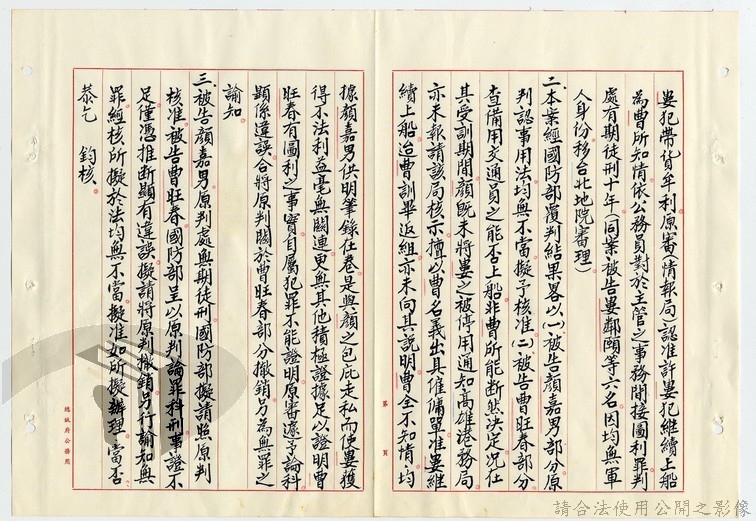 婁犯帶貨牟利原審(情報局)認准許婁犯繼續上船
為曹所知情依公務員對於主管之事務間接圖利罪判
處有期徒刑十年(同案被告婁鄰頤等六名因均無軍
人身份移台北地院審理)
二、本案經國防部覆判結果畧以(一)被告顏嘉男部分原
判認事用法均無不當擬予核准(二)被告曹旺春部分
查備用交通員之能否上船非曹所能斷然決定況在
其受訓期間顏既未將婁之被停用通知高雄港務局
亦未報請該局核示擅以曹名義出具僱傭單准婁繼
續上船迨曹訓畢返組亦未向其說明曹全不知情均
據顏嘉男供明筆錄在卷是與顏之包庇走私而使婁獲
得不法利益毫無關連更無其他積極證據足以證明曹
旺春有圖利之事實自屬犯罪不能證明原審遽予論科
顯係違誤合將原判關於曹旺春部分撤銷另為無罪之
諭知
三、被告顏嘉男原判處無期徒刑國防部擬請照原判
核准被告曹旺春國防部呈以原判論罪科刑事證不
足僅憑推斷顯有違誤擬請將原判撤銷另行諭知無
罪經核所擬於法均無不當擬准如所擬辦理當否
恭乞 鈞核
第 頁
總統府公務用
請合法使用公開之影像